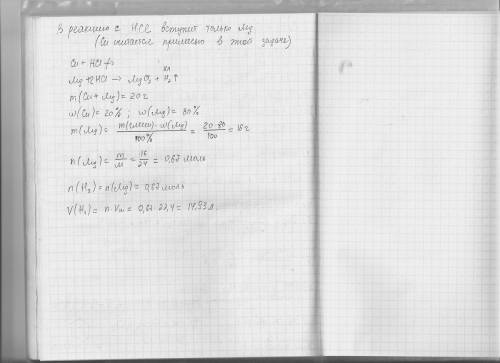 В реакцию с HCl вступит только Mg
(Cu считается примесью в этой задаче)
Cu + HCl ≠>
xл
Mg + 2HCl → MgCl₂ + H₂↑
m(Cu + Mg) = 20 г
w(Cu) = 20% ; w(Mg) = 80%
m(Mg) = m(смеси)·w(Mg) / 100% = 20·80 / 100 = 16 г
n(Mg) = m / M = 16 / 24 = 0,67 моль
n(H₂) = n(Mg) = 0,67 моль
V(H₂) = n·Vm = 0,67·22,4 = 14,93 л.